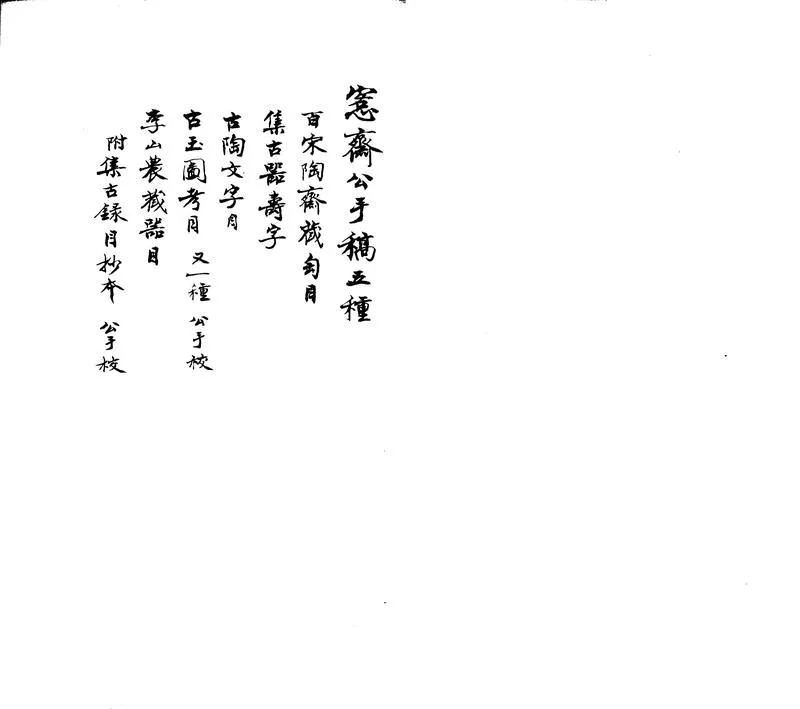 愙齋公手稿五種
百宋陶齋藏匋目
集古器壽字
古陶文字目
古玉圖考目 又一種 公手校
李山農藏器目
附集古錄目抄本 公手校